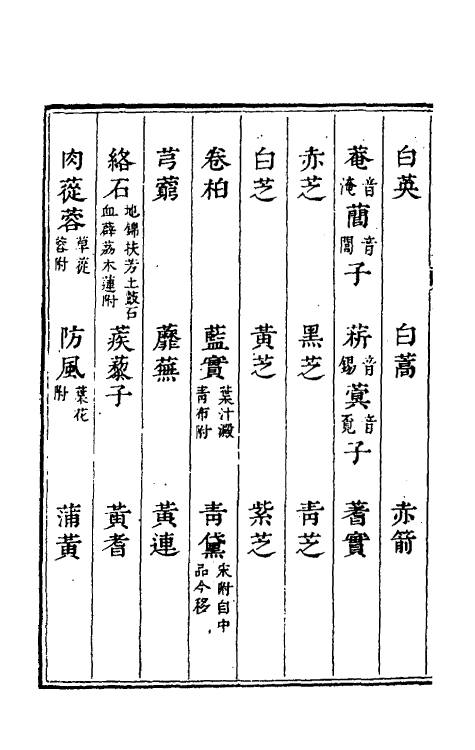 白英 白蒿 赤箭
菴音淹䕡音閭子 菥音錫蓂音覓子 蓍實
赤芝 黑芝 青芝
白芝 黃芝 紫芝
卷柏 藍實葉汁澱青布附 青黛宋附自中品今移
芎藭 蘼蕪 黃連
絡石地錦扶芳土鼓石血薜荔木蓮附 蒺藜子 黃耆
肉蓯蓉草蓯蓉附 防風葉花附 蒲黃